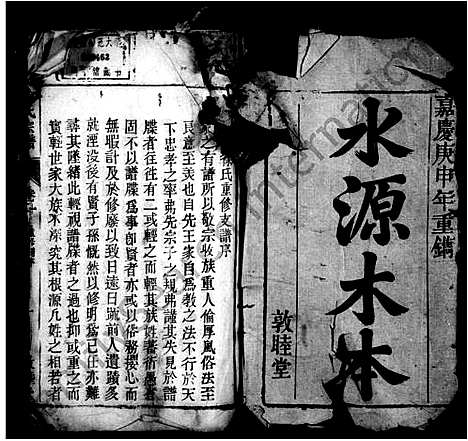 嘉慶庚申年重鐫
水源木本
敦睦堂
氏重修支譜序
之有譜所以敬宗收族重人倫厚風俗法至
良意至美也自先王家自為教之法不行於天
下忠孝之寧弗先宗子之規弗謹其失見於譜
牒者往往有二或輕之而輕其族姓著術
固不以譜牒為事卽賢者亦或以俗務擾心而
無暇計及於修廢以致日遠日 前 遺蹟多
就湮没後有賢子孫慨然以修明為己任亦難
尋其墜緒此輕視譜牒者之過也抑或重之而
實輕世家大族不深究其根源凡姓之相若者